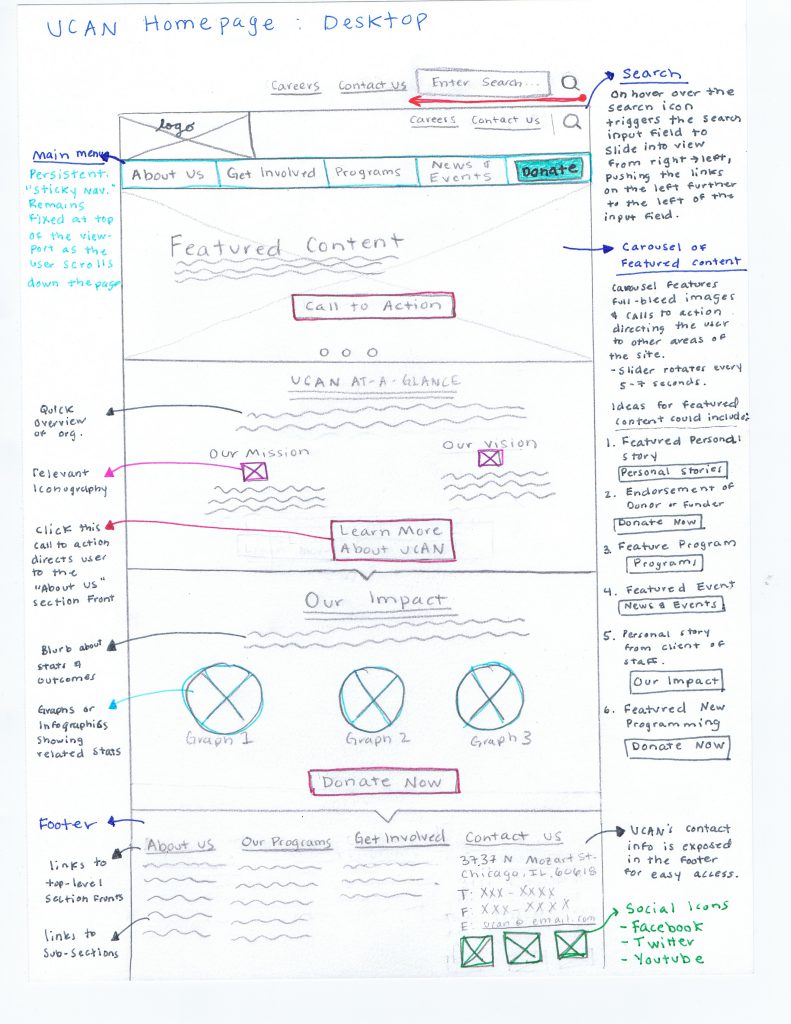 UCAN Homepage : Desktop
Careers Contact Us Enter Search...
logo
Careers Contact Us
About Us Get Involved Programs News & Events Donate
Featured Content
Call to Action
UCAN AT-A-GLANCE
Our Mission
Our Vision
Learn More
About UCAN
Our Impact
Graph 1
Graph 2
Graph 3
Donate Now
About Us
Our Programs
Get Involved
Contact Us
3737 N Mozart St.
Chicago, IL, 60618
T: XXX - XXXX
F: XXX - XXXX
E: ucan@email.com
Main menu
Persistent.
"Sticky Nav."
Remains
fixed at top
of the view-
port as the
user scrolls
down the page
Quick
overview
of org.
Relevant
Iconography
Click this
call to action
directs user
to the
"About Us"
section Front
Blurb about
stats &
outcomes
Graphs or
Infographics
showing
related stats
Footer
links to
top-level
Section Fronts
links to
Sub-Sections
Search
On hover over the
search icon
triggers the search
input field to
slide into view
from right → left,
pushing the links
on the left further
to the left of the
input field.
Carousel of
Featured content
Carousel features
full-bleed images
& calls to action
directing the user
to other areas of
the site.
- Slider rotates every
5-7 seconds.
Ideas for Featured
content could include:
1. Featured Personal
Story
Personal Stories
2. Endorsement of
Donor or Funder
Donate Now
3. Feature Program
Programs
4. Featured Event
News & Events
5. Personal story
from client of
staff.
Our Impact
6. Featured New
Programming
Donate Now
UCAN's contact
info is exposed
in the footer
for easy access.
Social Icons
- Facebook
- Twitter
- Youtube